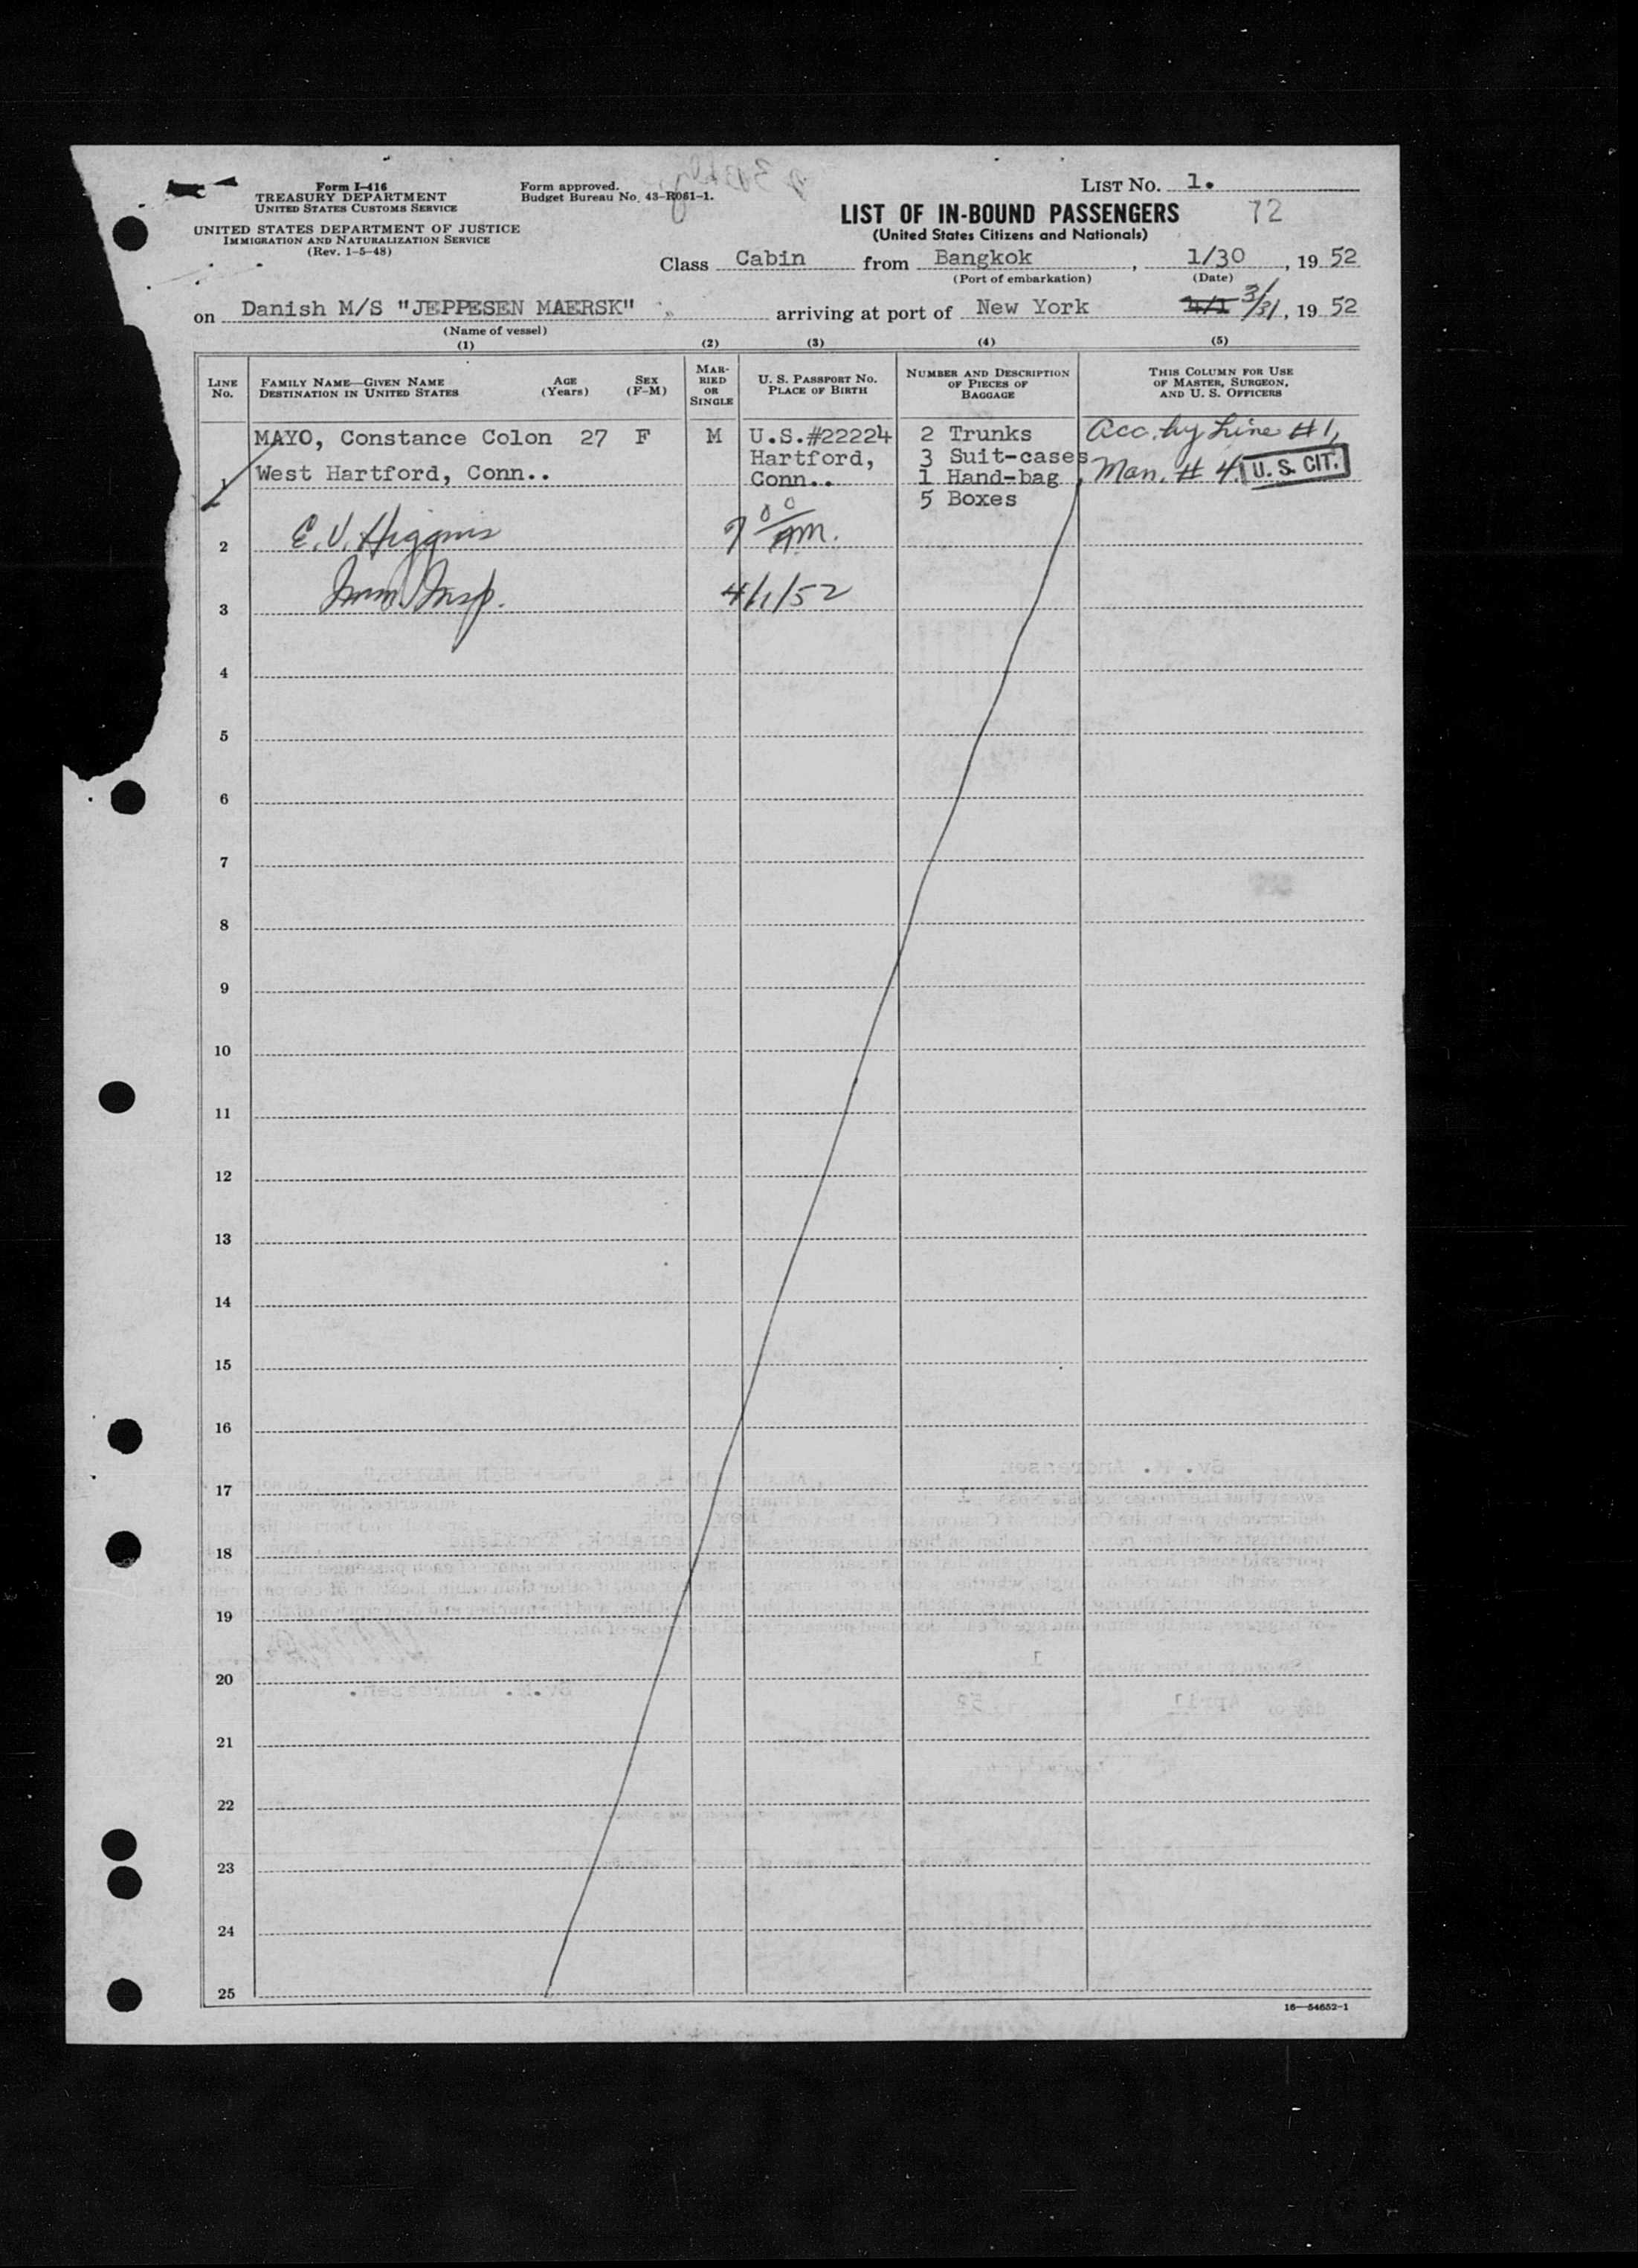 Form I-416
TREASURY DEPARTMENT
UNITED STATES CUSTOMS SERVICE
UNITED STATES DEPARTMENT OF JUSTICE
IMMIGRATION AND NATURALIZATION SERVICE
(Rev. 1-5-48)
Form approved.
Budget Bureau No. 43-R061-1.
LIST NO. 1.
LIST OF IN-BOUND PASSENGERS 72
(United States Citizens and Nationals)
Class Cabin from Bangkok, 1/30, 19 52
(Port of embarkation) (Date)
on Danish M/S "JEPPESEN MAERSK" arriving at port of New York 4/1 3/31, 19 52
(Name of vessel)
(1) (2) (3) (4) (5)
LINE No.
FAMILY NAME—GIVEN NAME
DESTINATION IN UNITED STATES
AGE
(Years)
SEX
(F-M)
MARRIED OR SINGLE
U. S. PASSPORT NO.
PLACE OF BIRTH
NUMBER AND DESCRIPTION
OF PIECES OF
BAGGAGE
THIS COLUMN FOR USE
OF MASTER, SURGEON,
AND U. S. OFFICERS
MAYO, Constance Colon 27 F M U.S.#22224 2 Trunks Acc. by Line #1,
Hartford, 3 Suit-cases
1 West Hartford, Conn.. Conn.. 1 Hand-bag Man. # 4. U. S. CIT.
5 Boxes
2 E. V. Higgins 7 00 AM.
3 Imm. Insp. 4/1/52
4
5
6
7
8
9
10
11
12
13
14
15
16
17
18
19
20
21
22
23
24
25
16—54652-1